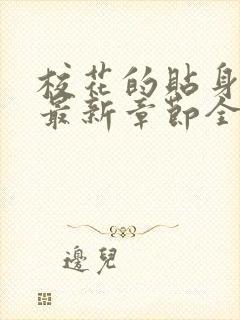 校花的貼身
最新章節全
邊兒